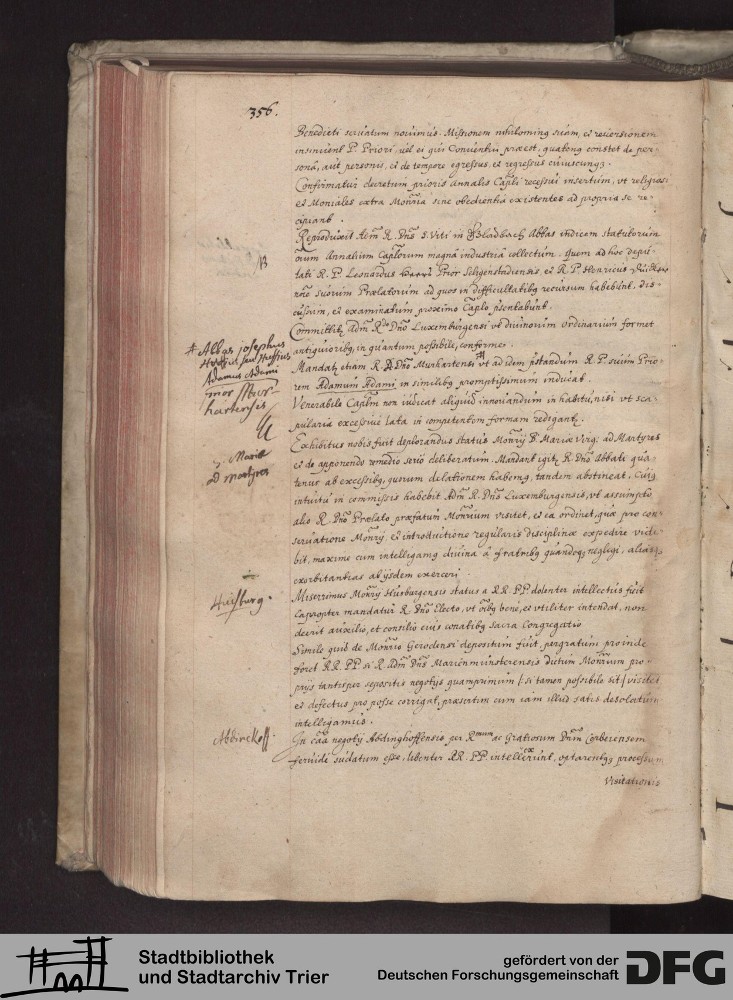 356.
Benedicti seruatum nouimus. Missionem nihiloming suam, et reuersionem
insinuent P. Priori uel ei qui Conuentui praeest, quatong constet de per-
sonâ, aut personis, et de tempore egressus, et regressus cuiuscunqz.
Confirmatur decretum prioris annalis Capli recessui insertum, vt religiosi
et Moniales extra Monria sine obedientia existentes ad propria se re-
cipiant.
Reproduxit Adm R. Dns S. Viti in Gladbach Abbas indicem statutorum
omm Annalium Caplorum magnâ industriâ collectum. Quem ad hoc depu-
tati R. P. Leonardus Prior Seligenstadiensis et R. P. Henricus
nne suorum Praelatorum ad quos in difficultatibg recursum habebunt, dis-
cussum, et examinatum proximo Caplo psentabunt.
Committitz Adm Rdo Dno Luxemburgensi vt diuinorum ordinarium formet
antiquioribg, in quantum possibile, conforme.
Mandatz etiam R. Dno Murhartensi # vt ad idem pstandum R. P. suum Prio-
rem Adamum Adami in similibg promptissimum inducat.
Venerabile Caplm non iudicat aliquid innouandum in habitu, nisi vt sca-
pularia excessiue lata in competentem formam redigantz.
Exhibitus nobis fuit deplorandus status Monry B. Mariae Virg. ad Martyres
et de apponendo remedio serio deliberatum. Mandant igitz R. Dno Abbati qua-
tenus ab excessibg, quorum delationem habemg, tandem abstineat. Cuig
intuitu in commissis habebit Adm R. Dns Luxemburgensis, vt assumpto
alio R. Dno Praelato praefatum Monrium visitet, et ea ordinet, quae pro con-
seruatione Monry et introductione regularis disciplinae expedire vide-
bit, maxime cum intelligamg diuina â fratribg quandoqz negligi, aliasqz
exorbitantias ab ijsdem exerceri.
Miserrimus Monry Husburgensis status a RR. PP. dolenter intellectus fuit
Capropter mandatur R. Dno Electo, vt oibg bene, et vtiliter intendat, non
deerit auxilio, et consilio euis conatibg Sacra Congregatio
Simile quid de Monrio Gerodensi depositum fuit, pergratum proinde
foret RR. PP. si R. adm Dns Marienmunsterensis dictum Monrium pro-
prijs tantisper sepositis negotys quamprimum /: si tamen possibile sit :/ visitet
et defectus pro posse corrigat, praesertim cum iam illud satis desolatum
intelligamus.
In caa negoty Abdinghoffensis per Rmum ac Gratiosum Dnm Corbeiensem
feruide sudatum esse, libenter RR. PP. intellexerunt, optarentqz processum
Visitationis
B
# Abbas josephus
Adamus Adami
prior Mur-
hartensis
S. Mariae
ad martyres
Huisburg.
Abdinckoff.
Stadtbibliothek
und Stadtarchiv Trier
gefördert von der
Deutschen Forschungsgemeinschaft
DFG